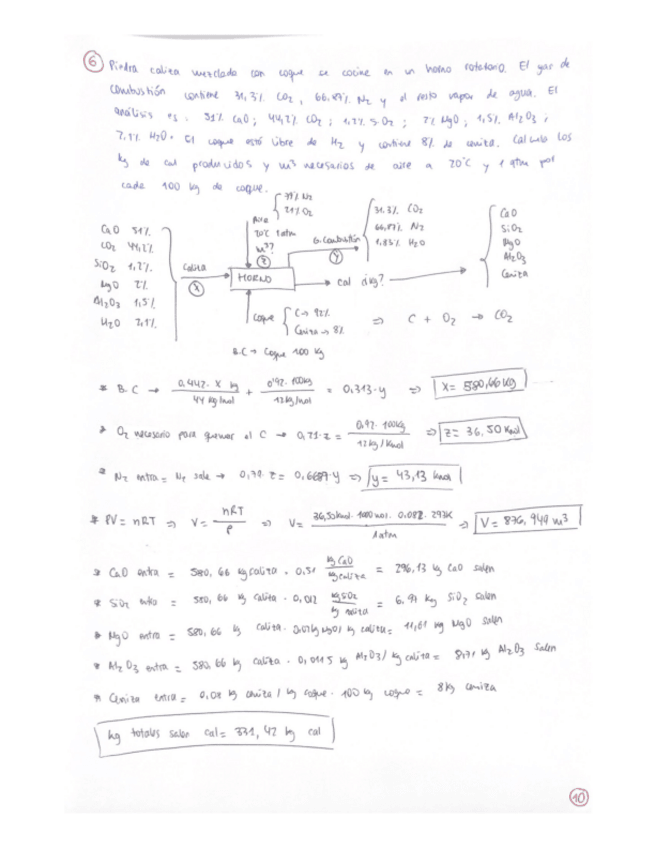 6 Piedra caliza mezclada con coque se cocine en un horno rotatorio. El gas de
combustión contiene 31,3% CO2, 66,87% N2 y el resto vapor de agua. El
análisis es: 51% CaO; 44,2% CO2; 1,2% SiO2; 2% MgO; 1,5% Al2O3;
H2O. El coque está libre de H2 y contiene 8% de ceniza. Calcula los
kg de cal producidos y m³ necesarios de aire a 20°C y 1 atm por
cada 100 kg de coque.
CaO 51%
CO2 44,2%
SiO2 1,2%
MgO 2%
Al2O3 1,5%
H2O
Caliza
X
Aire
79% N2
21% O2
20°C 1 atm
m³?
Z
HORNO
G. Combustión
Y
31,3% CO2
66,87% N2
1,83% H2O
cal d kg?
CaO
SiO2
MgO
Al2O3
Ceniza
Coque
C → 92%
Ceniza → 8%
⇒ C + O2 → CO2
B.C → Coque 100 kg
* B.C → 0,442 · X kg / 44 kg/kmol + 0'92 · 100kg / 12kg/kmol = 0,313 · y ⇒ X = 580,66 kg
* O2 necesario para quemar el C → 0,21 · z = 0,92 · 100kg / 12kg/kmol ⇒ z = 36,50 kmol
* N2 entra = N2 sale → 0,79 · z = 0,6687 · y ⇒ y = 43,13 kmol
* PV = nRT ⇒ V = nRT / P ⇒ V = 36,50kmol · 1000 mol · 0.082 · 293K / 1 atm ⇒ V = 876,949 m³
* CaO entra = 580,66 kg caliza · 0,51 kg CaO / kg caliza = 296,13 kg CaO salen
* SiO2 entra = 580,66 kg caliza · 0,012 kg SiO2 / kg caliza = 6,97 kg SiO2 salen
* MgO entra = 580,66 kg caliza · 0,02 kg MgO / kg caliza = 11,61 kg MgO salen
* Al2O3 entra = 580,66 kg caliza · 0,015 kg Al2O3 / kg caliza = 8,71 kg Al2O3 salen
* Ceniza entra = 0,08 kg ceniza / kg coque · 100 kg coque = 8 kg ceniza
kg totales salen cal = 331,42 kg cal
10